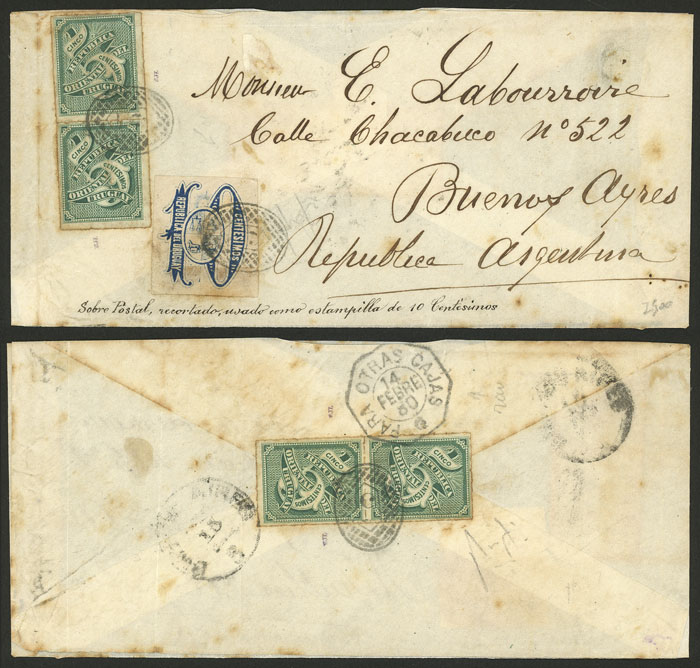 CINCO
REPUBLICA
ORIENTAL DEL
CENTESIMOS
URUGUAY
CINCO
REPUBLICA
ORIENTAL DEL
CENTESIMOS
URUGUAY
REPUBLICA DEL URUGUAY
CENTESIMOS
Monsieur E. Labourroire
Calle Chacabuco nº 522
Buenos Ayres
Republica Argentina
Sobre Postal, recortado, usado como estampilla de 10 Centésimos
2500
PARA OTRAS CAJAS
14
FEBRE
80
CINCO
REPUBLICA
ORIENTAL DEL
CENTESIMOS
URUGUAY
CINCO
REPUBLICA
ORIENTAL DEL
CENTESIMOS
URUGUAY